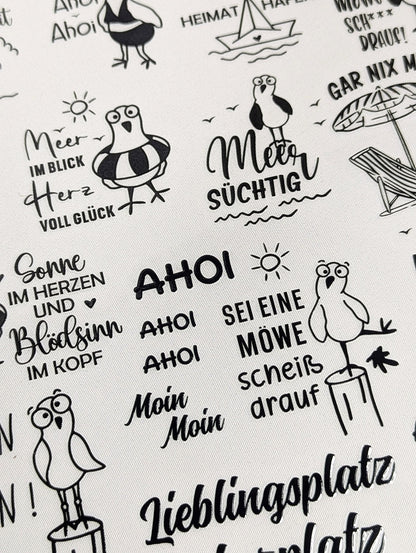 Ahoi
Ahoi
HEIMAT
HAFEN
SCH***
DRAUF!
GAR NIX M
Meer
IM BLICK
Herz
VOLL GLÜCK
Meer
SÜCHTIG
Sonne
IM HERZEN
UND
Blödsinn
IM KOPF
AHOI
AHOI
AHOI
Moin
Moin
SEI EINE
MÖWE
scheiß
drauf
N
N!
Lieblingsplatz